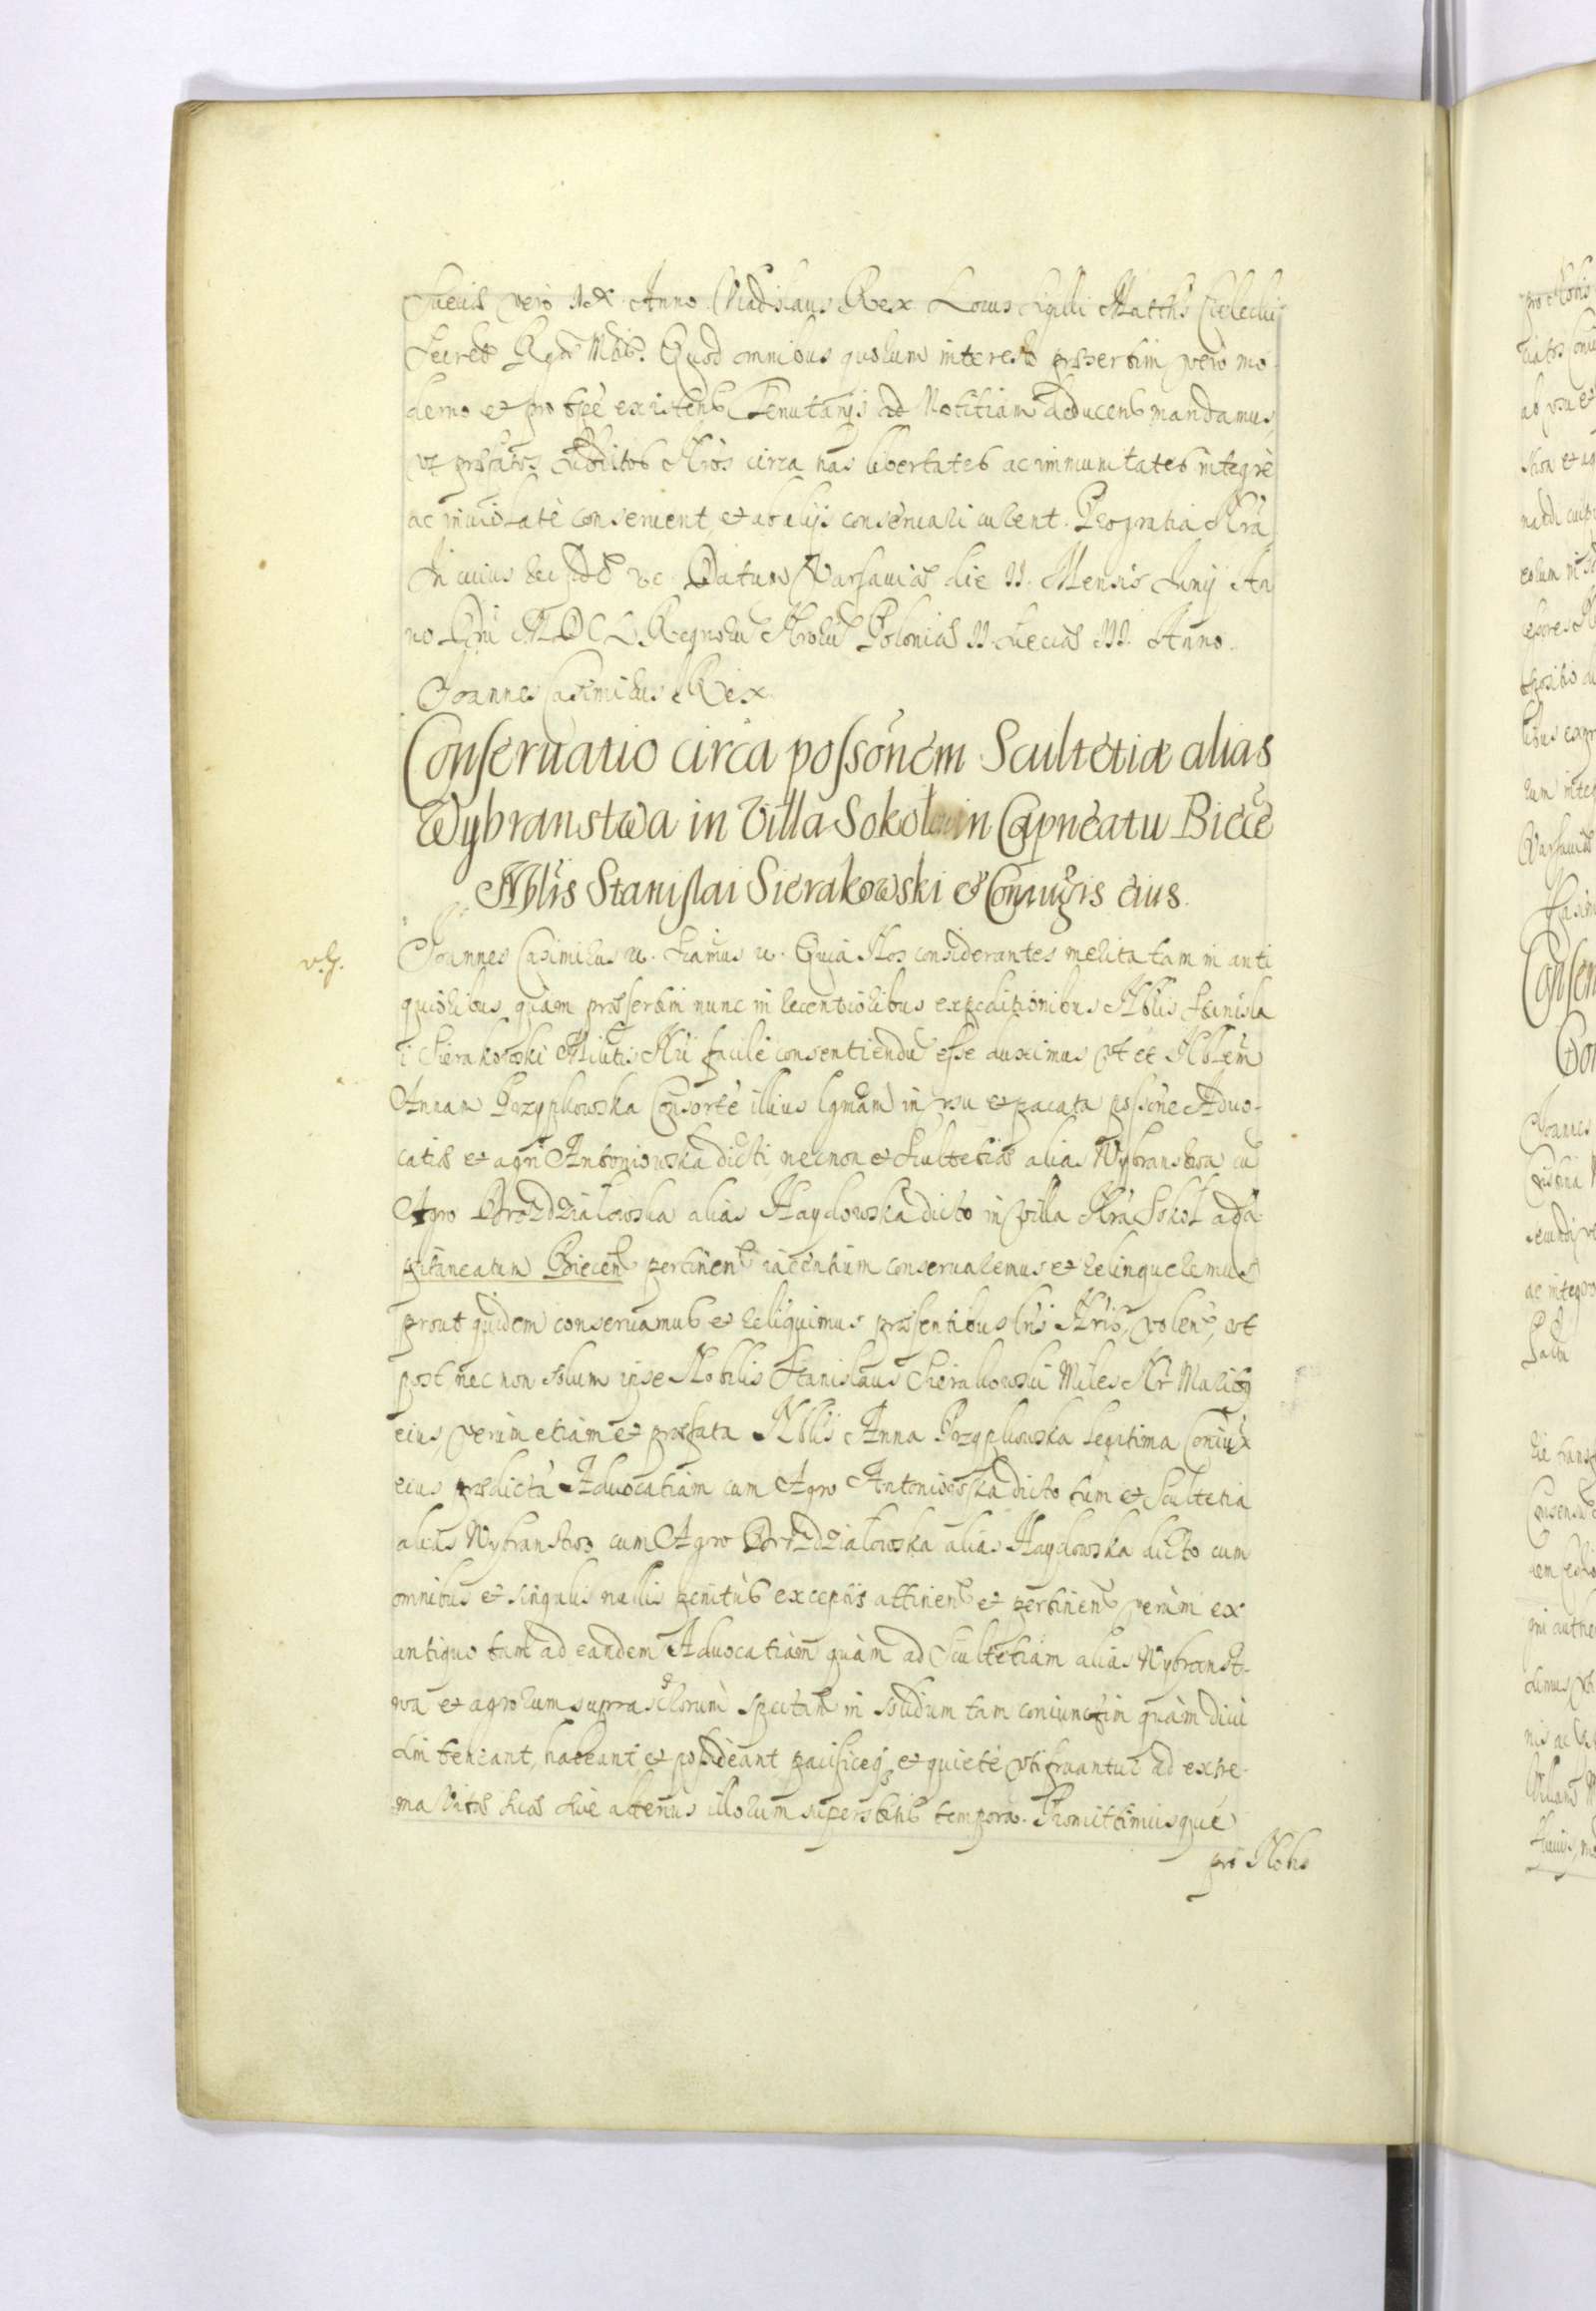 Sueciæ vero IX Anno. Vladislaus Rex. Locus Sigilli Matths Cielecki
Secret Rgæ Mttis. Quod omnibus quorum interest præsertim vero mo-
derno et pro tpe existen Tenutarijs ad Notitiam deducen mandamus,
vt præfatos Subditos Nros circa has libertates ac immunitates integrè
ac inuiolatè conseruent et ab alijs conseruari curent. Pro gratia Nra
In cuius rei fidē vc. Datum Varsauiæ die II. Mensis Junij An
no Dni MDCL Regnorū Nrorū Poloniæ II. Sueciæ III. Anno.
Joannes Casimirus Rex.
Conseruatio circa possonem Scultetiæ alias
Wybranstwa in Villa Sokol in Capneatu Biece
Nblis Stanislai Sierakowski & Coniugis eius.
Joannes Casimirus u. Seamus u. Quia Nos considerantes merita tam in anti
quioribus, quam præsertim nunc in recentioribus expeditionibus Nblis Stanisla
i Sierakowski Militis Nri facile consentiendū esse duximus vt et Nblem
Annam Przypkowska Consorte illius lgmam in vsu et pacata possone Aduo-
catiæ et agri Antoniowska dicti necnon et Scultetiæ alias Wybranstwa cū
Agro Brozdzialowska alias Haydowska dicto in Villa Nra Sokol ad Ca-
pitaneatum Biecen pertinen iacentium conseruaremus et relinqueremus
prout quidem conseruamus et relinquimus præsentibus lris Nris, volen, vt
post hec non solum ipse Nobilis Stanislaus Sierakowski Miles Nr Maritq
eius verùm etiam et præfata Nblis Anna Przypkowska legitima Coniux
eius prædictā Aduocatiam cum Agro Antoniowska dicto tum et Scultetia
alias Wybranstwo cum Agro Brozdzialowska alias Haydowska dicto cum
omnibus et singulis nullis penitùs exceptis attinen et pertinen verùm ex
antiquo tam ad eandem Aduocatiam quàm ad Scultetiam alias Wybranst-
wa et agrorum suprascriptorum spectan in solidum tam coniunctim quàm diui
sim teneant, habeant et possideant pacificeq et quietè vtifruantur ad extre-
ma vitæ suæ siue alterius illorum superstitis tempora. Promittimusque
pro Nobis
v.g.